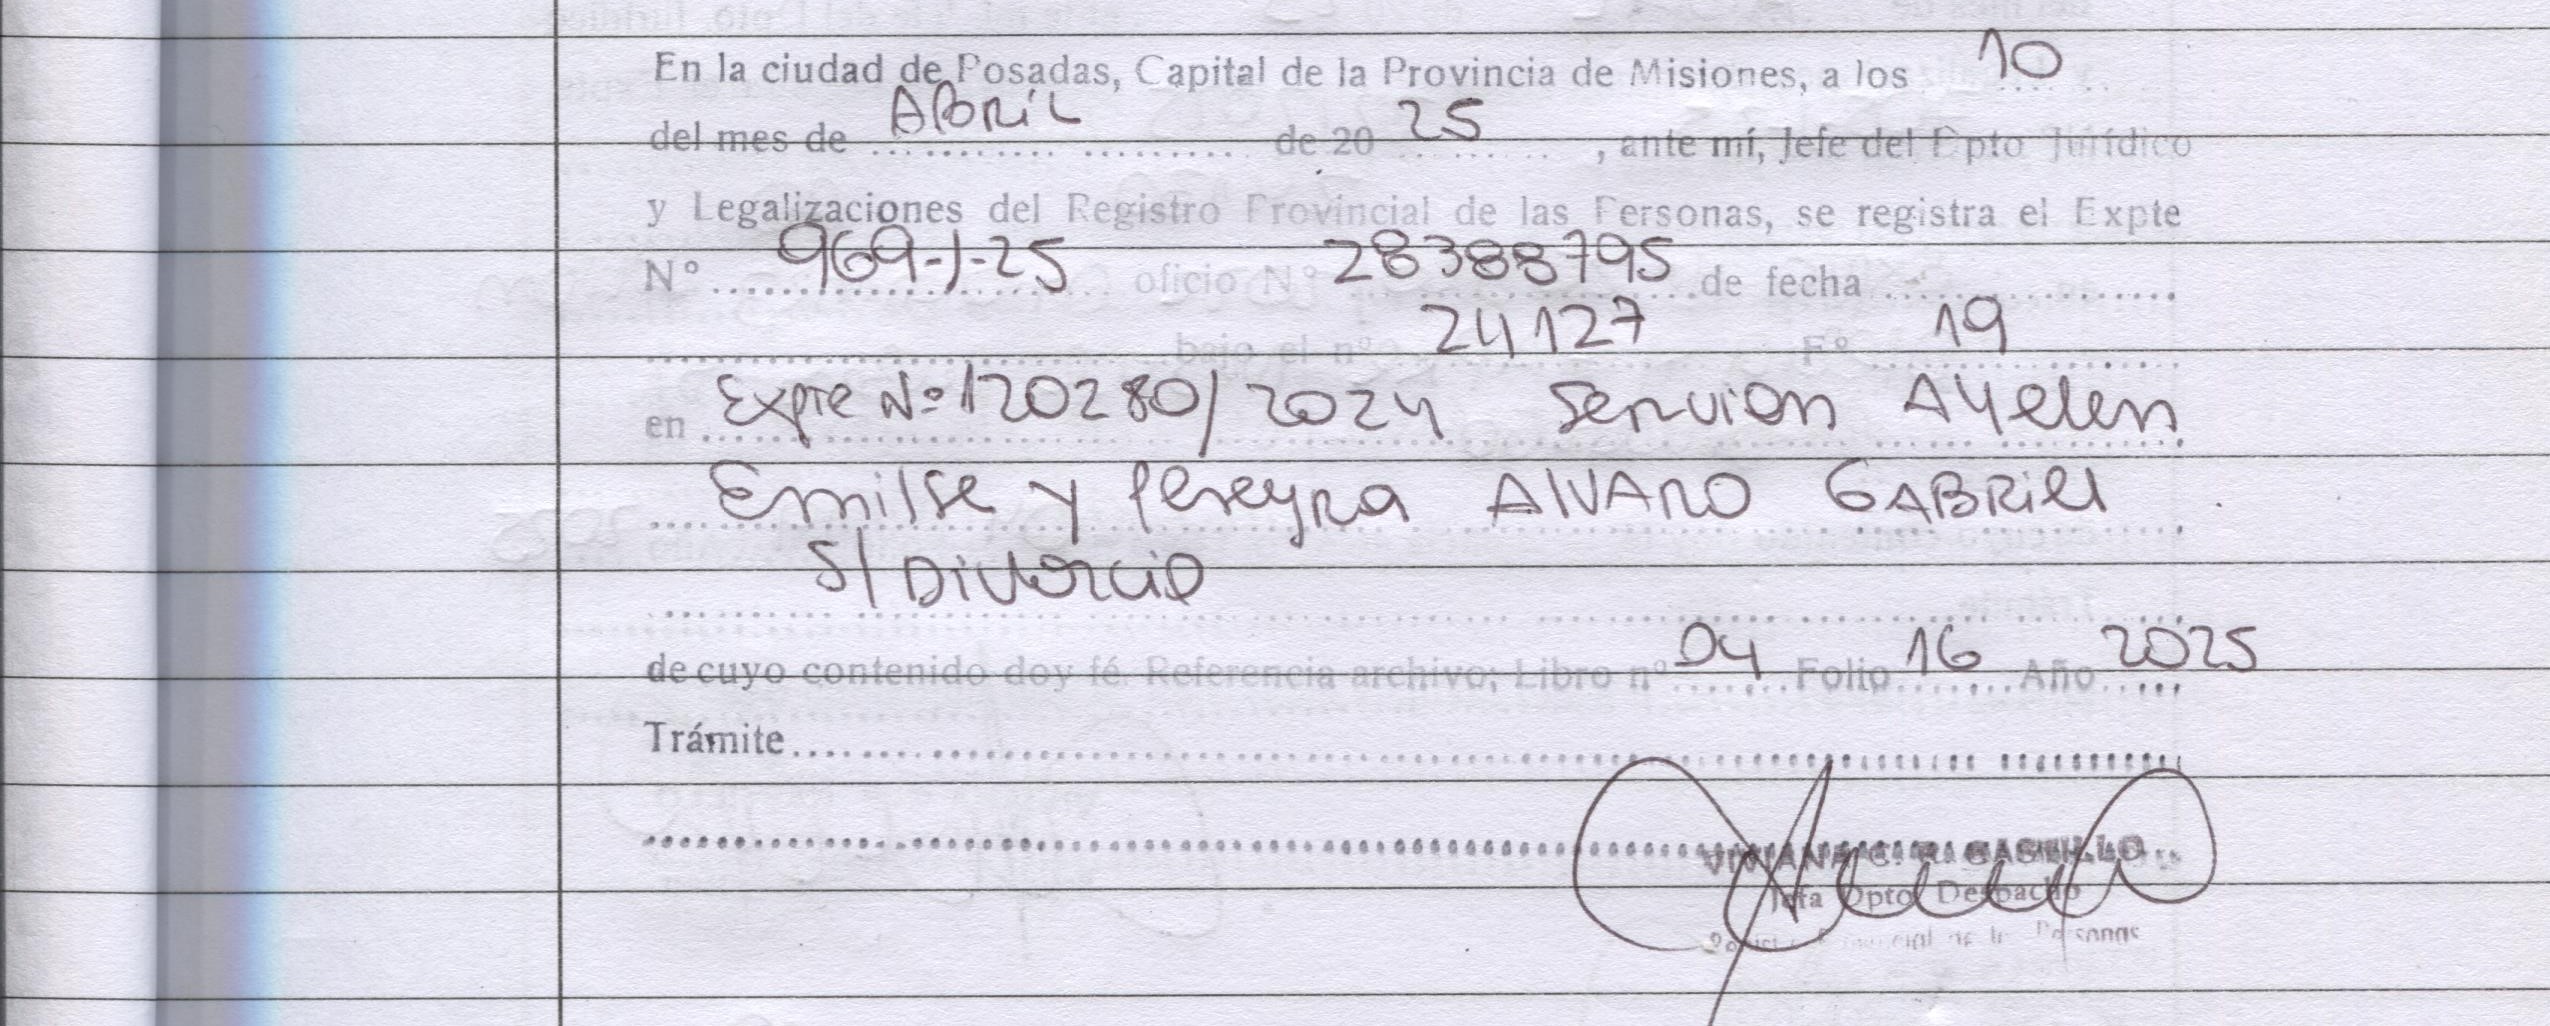 En la ciudad de Posadas, Capital de la Provincia de Misiones, a los 10
del mes de Abril de 20 25, ante mí, Jefe del Dpto Jurídico
y Legalizaciones del Registro Provincial de las Personas, se registra el Expte
Nº 969-J-25 oficio Nº 28388795 de fecha
bajo el nº 24127 Fº 19
en Expte Nº 120280/2024 Servion Ayelen
Emilse y Pereyra Alvaro Gabriel
S/ Divorcio
de cuyo contenido doy fé. Referencia archivo; Libro nº 04 Folio 16 Año 2025
Trámite
VIVIANA C. R. CASTILLO
Jefa Dpto Despacho
Registro Provincial de las Personas